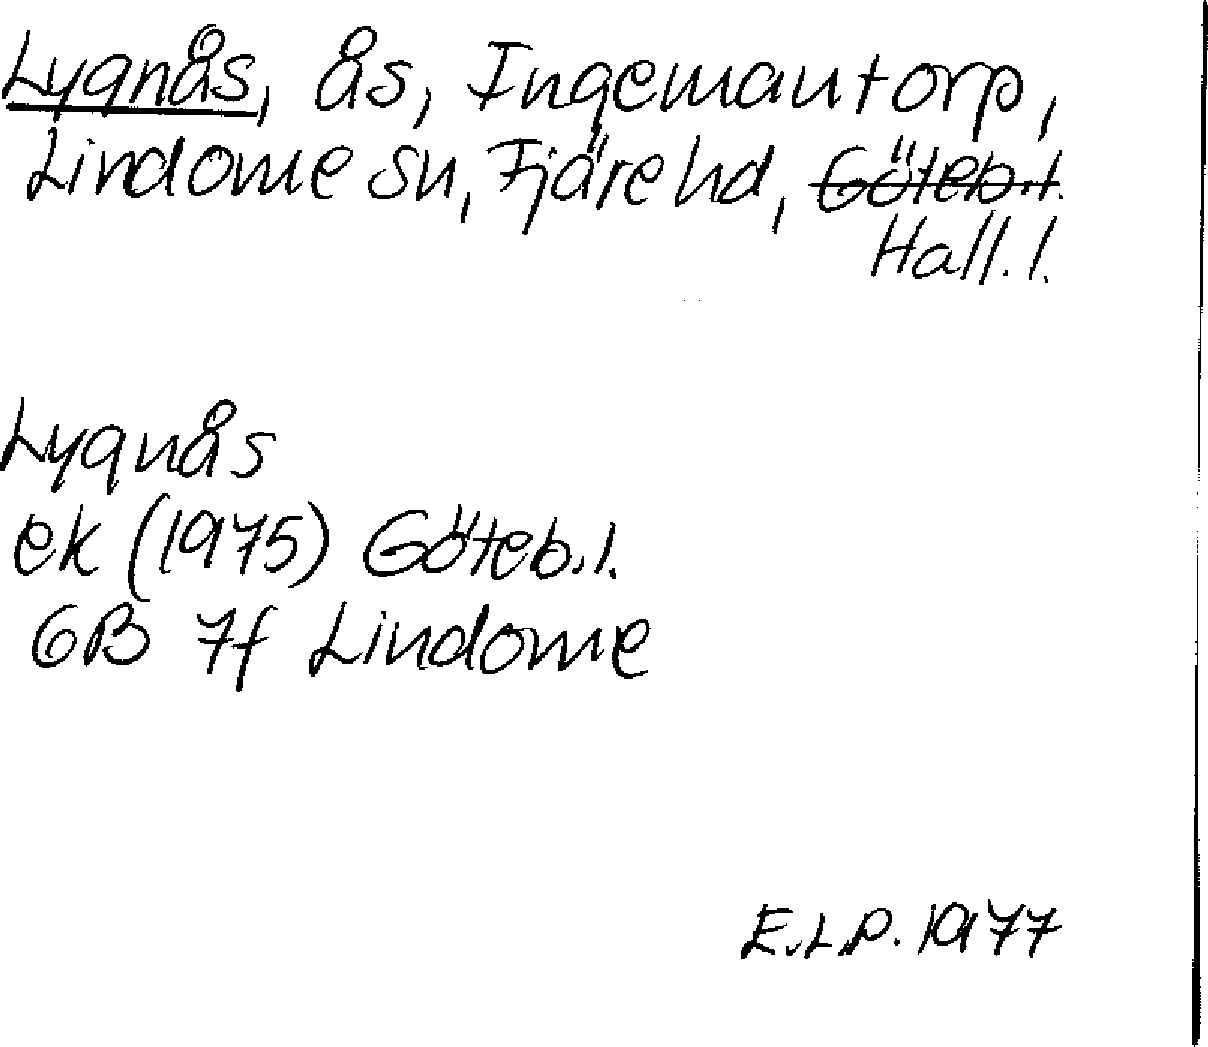 Lygnås, ås, Ingemantorp,
Lindome sn, Fjäre hd, Göteb.l.
Hall. l.
Lygnås
ek (1975) Göteb.l.
6B 7f Lindome
E.L.P. 1977